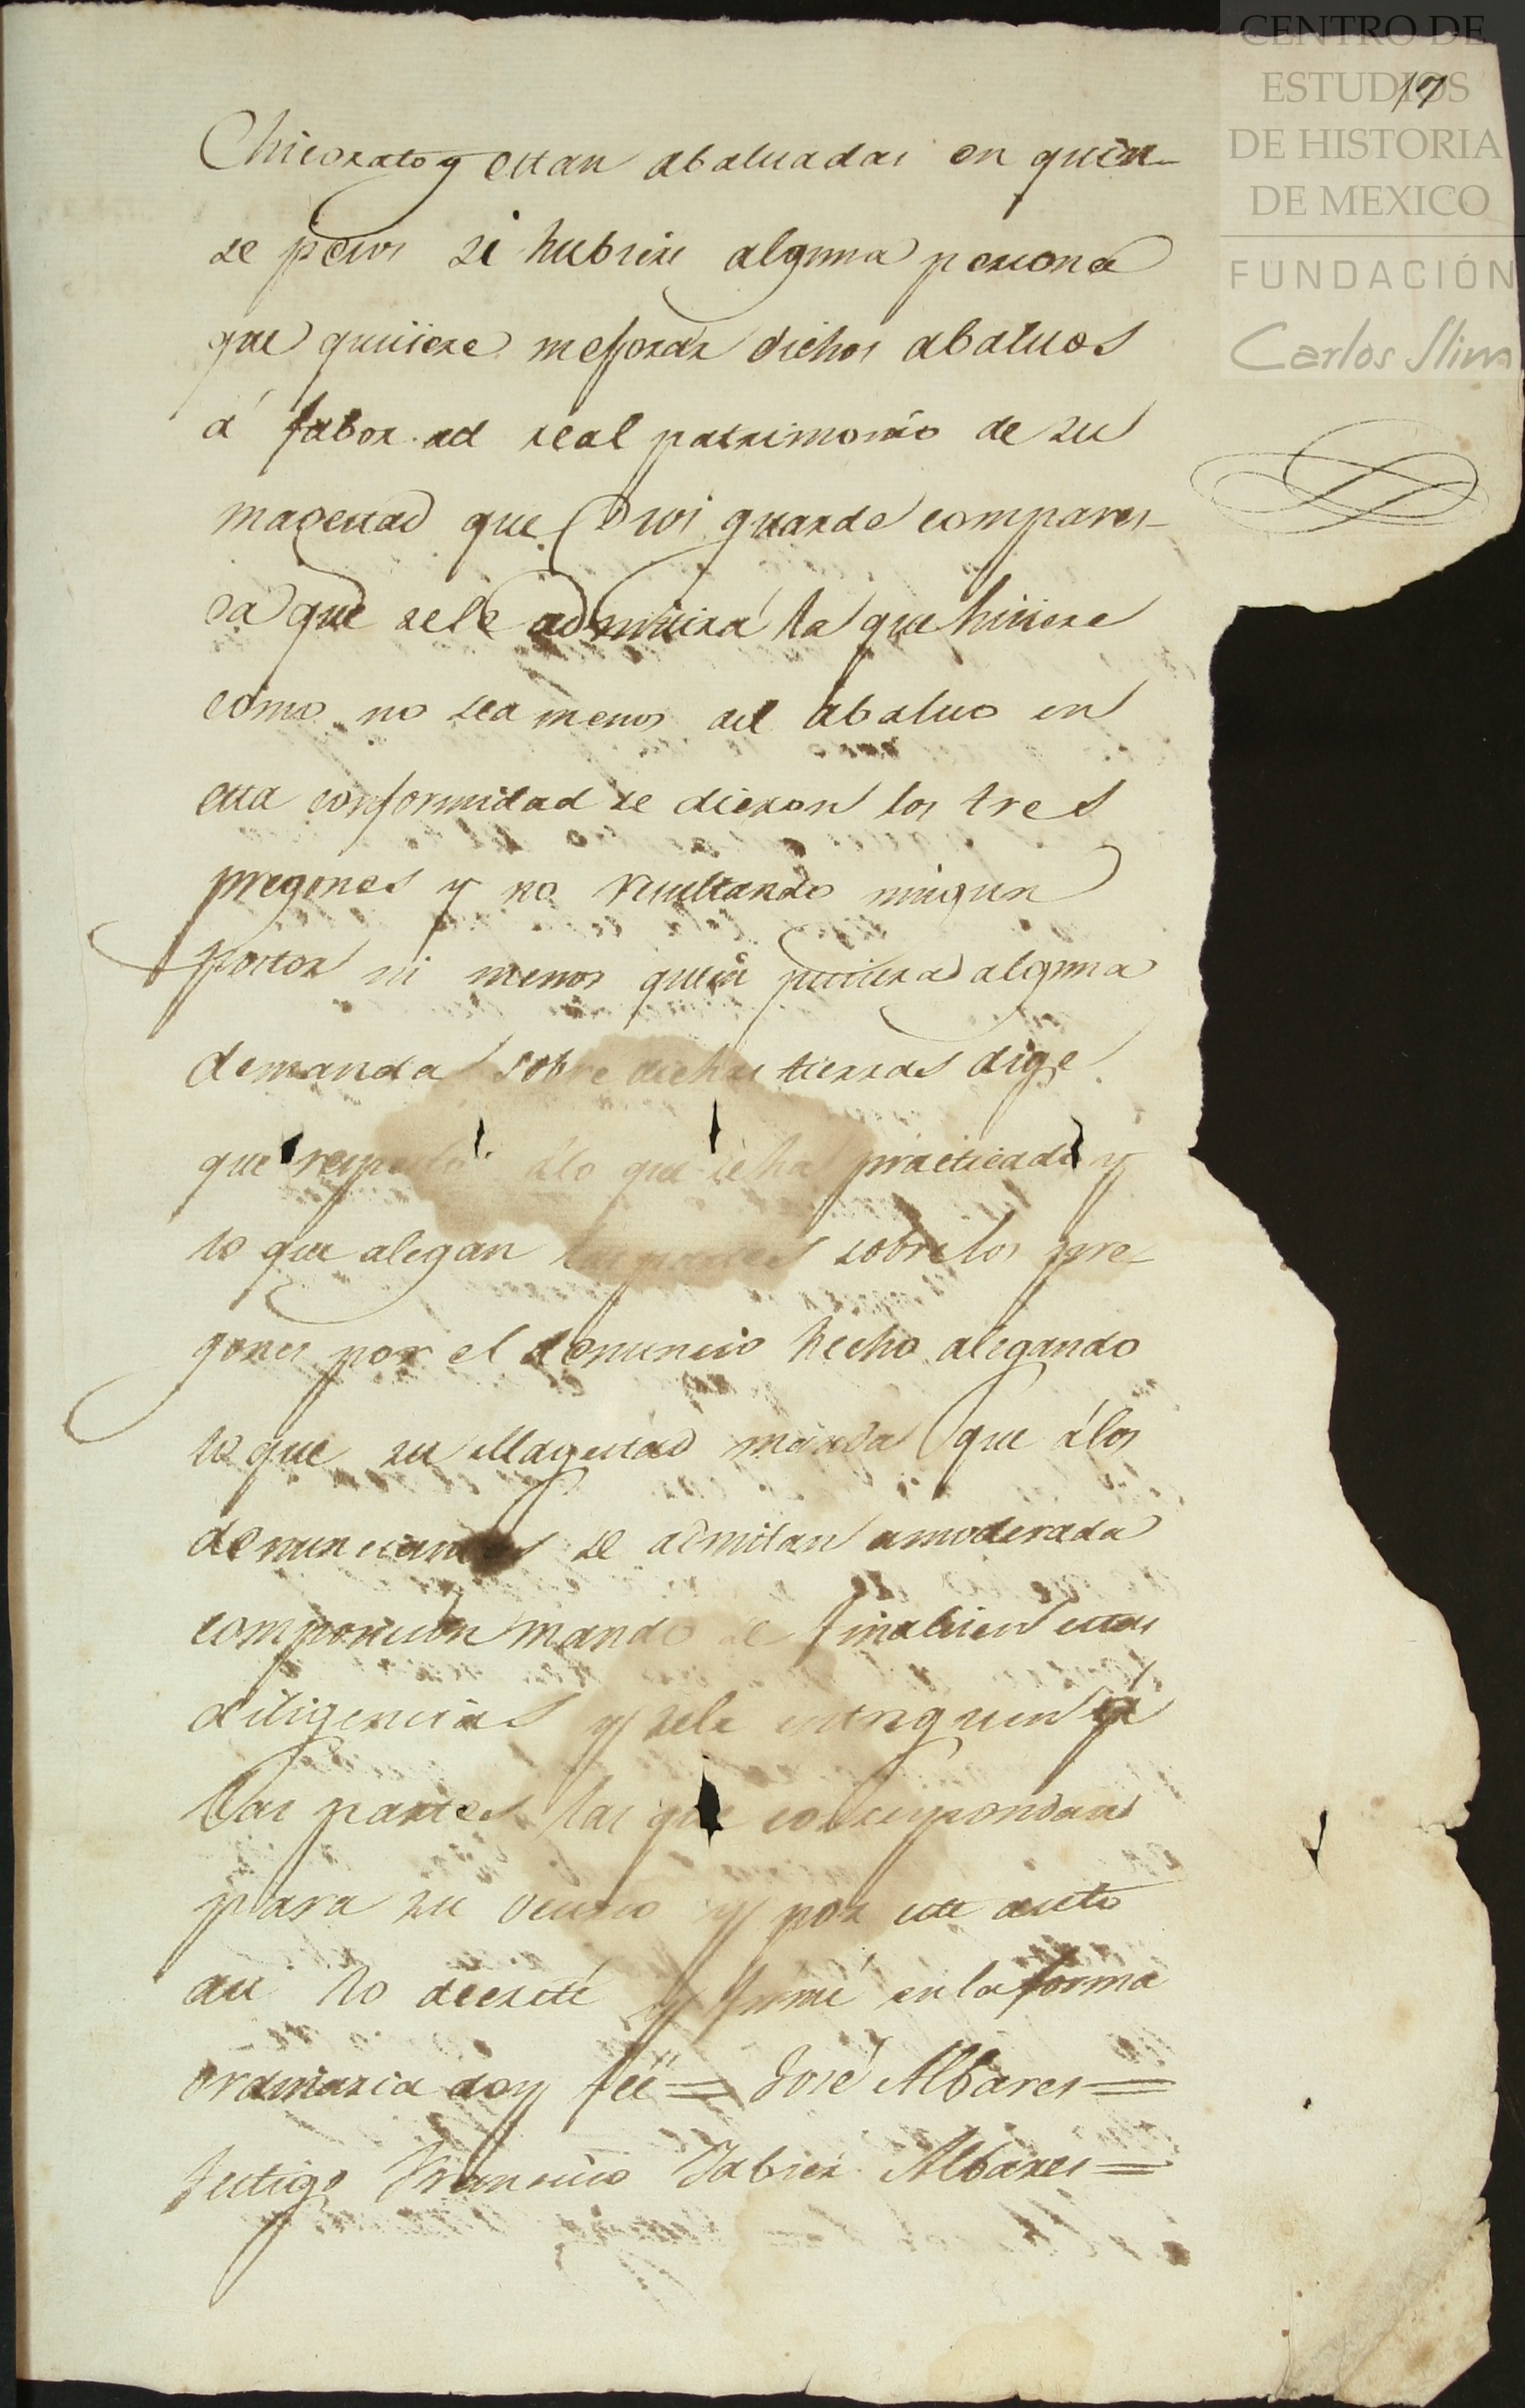 CENTRO DE
ESTUDIOS
DE HISTORIA
DE MEXICO
FUNDACIÓN
Carlos Slim
17
Chicorato y estan abaluadas en quin-
se pesos si hubiere alguna persona
que quisiere mejorar dichos abaluos
á fabor del real patrimonio de su
magestad que Dios guarde compares-
ca que sele admitirá la que hiciere
como no sea menos del abaluo en
esta conformidad se dieron los tres
pregones y no resultando ningun
postor ni menos quien pusiera alguna
demanda sobre dichas tierras dige
que respecto álo que se ha practicado y
lo que alegan las partes sobre los pre-
gones por el denuncio hecho alegando
lo que su Magestad manda que álos
denunciantes se admitan amoderada
composicion mando se finalisen estas
diligencias y sele entreguen á
las partes las que correspondan
para su ocurso y por este auto
asi lo decreté y firmé en la forma
ordinaria doy feé = José Albares =
testigo Francisco Jabier Albares =